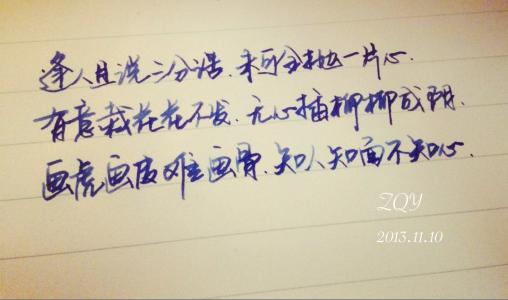 逢人且说三分话.未可全抛一片心.
有意栽花花不发.无心插柳柳成阴.
画虎画皮难画骨.知人知面不知心.
ZQY
2013.11.10